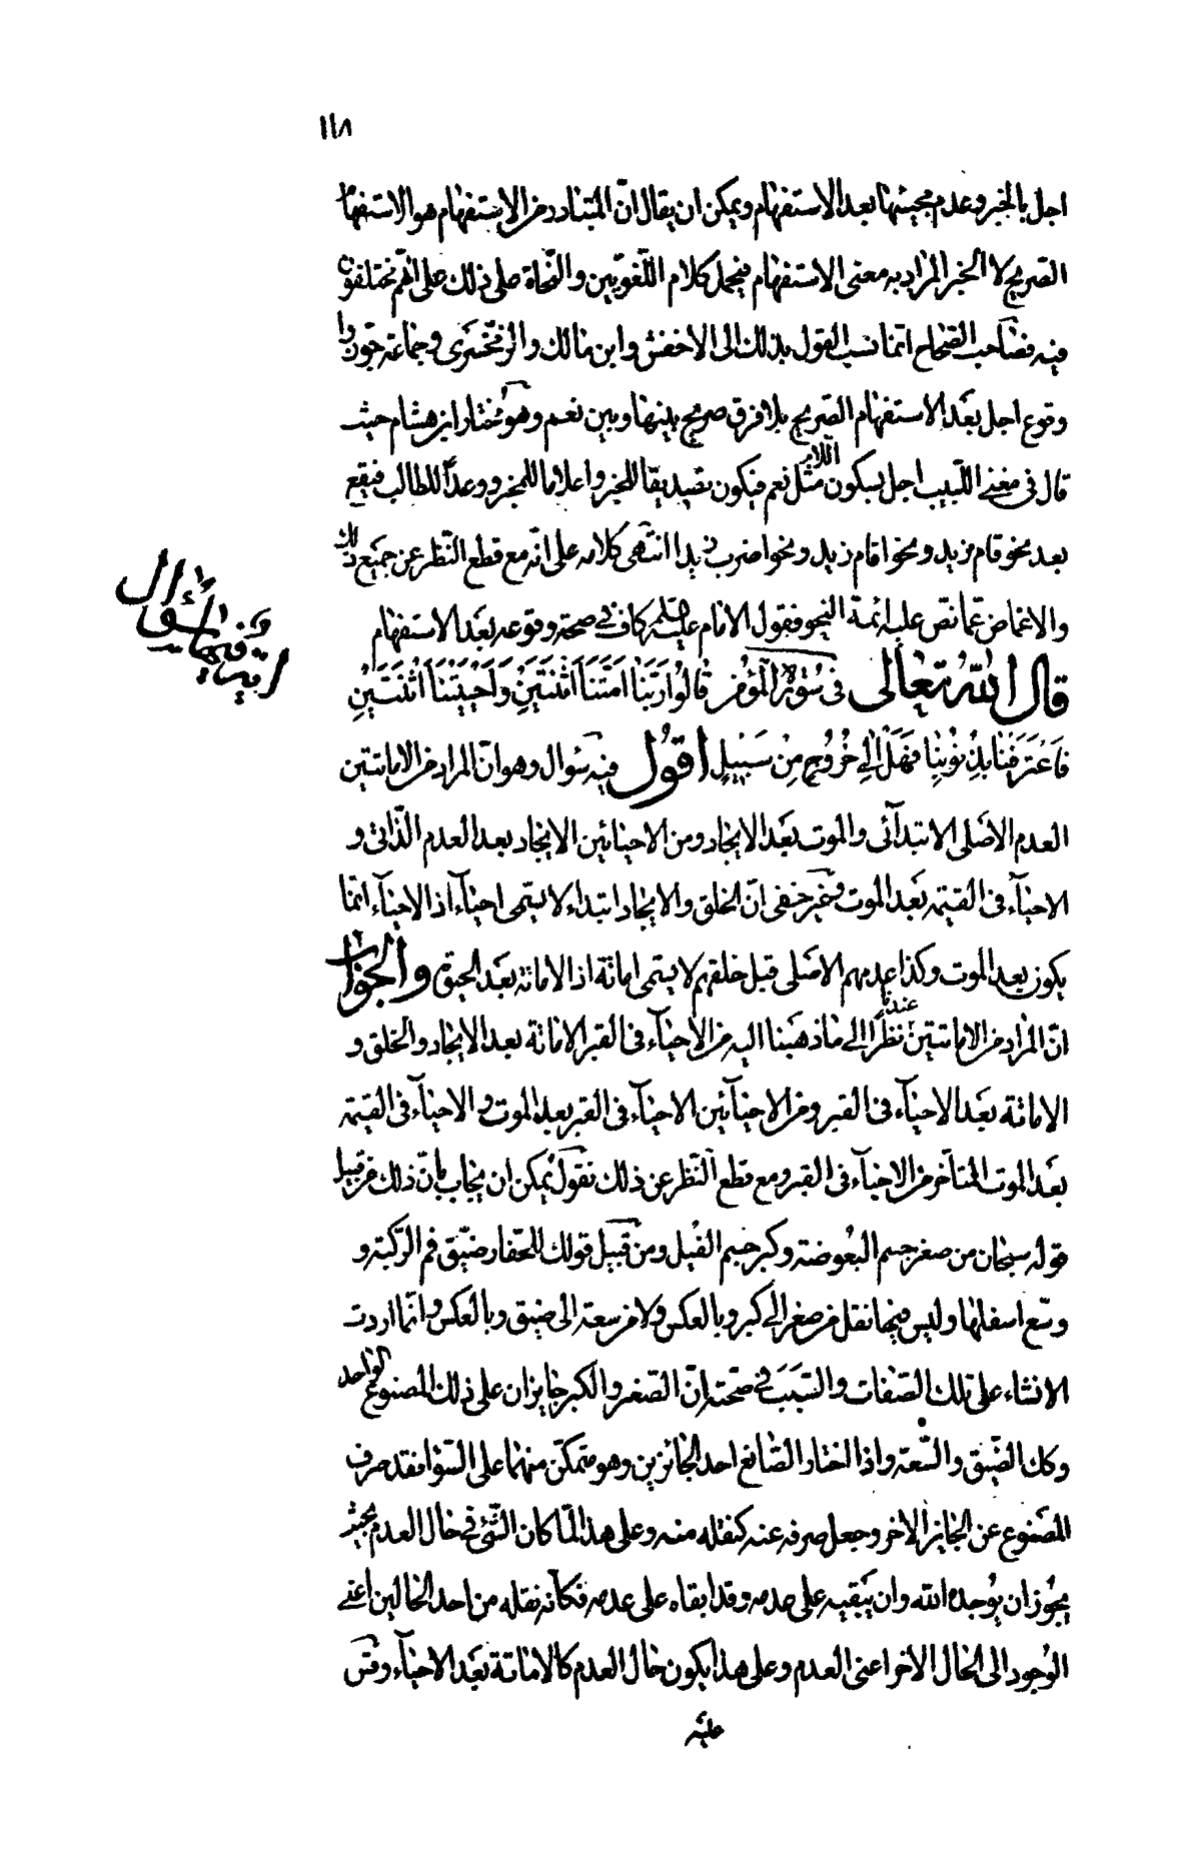 ١١٨
اجل بالخبر وعدم مجيئها بعد الاستفهام ويمكن ان يقال انّ المتبادر من الاستفهام هو الاستفهام
الصريح لا الخبر المراد به معنى الاستفهام فيحمل كلام اللّغويّين والنّحاة على ذلك على انّهم مختلفون
فيه فصاحب الصّحاح انّما نسب القول بذلك الى الاخفش وابن مالك والزمخشرى وجماعة جوّزوا
وقوع اجل بعد الاستفهام الصريح بلا فرق صريح بينها وبين نعم وهو مختار ابن هشام حيث
قال فى مغنى اللّبيب اجل بسكون اللّام مثل نعم فيكون تصديقا للمخبر واعلاما للمخبر ووعداً للطالب فيقع
بعد نحو قام زيد ونحو اقام زيد ونحو اضرب زيدا انتهى كلامه على انّه مع قطع النّظر عن جميع ذلك
والاغماض عمّا نصّ عليه ائمة النحو فقول الامام عليه السلم كاف فى صحة وقوعه بعد الاستفهام
قال الله تعالى فى سورة المؤمن قالُوا رَبَّنا اَمَتَّنَا اثْنَتَيْنِ وَاَحْيَيْتَنَا اثْنَتَيْنِ
فَاعْتَرَفْنا بِذُنُوبِنا فَهَلْ اِلى خُرُوجٍ مِنْ سَبيلٍ اقول فيه سؤال وهو انّ المراد من الاماتتين
العدم الاصلى الابتدآئى والموت بعد الايجاد ومن الاحيائين الايجاد بعد العدم الذّاتى و
الاحيآء فى القيمة بعد الموت وغير خفى انّ الخلق والايجاد ابتداء لا يسمى احيآء اذ الاحيآء انّما
يكون بعد الموت وكذا عدمهم الاصلى قبل خلقهم لا يسمى اماتة اذ الاماتة بعد الحيوة والجواب
انّ المراد من الاماتتين عندنا نظراً الى ما ذهبنا اليه من الاحيآء فى القبر الاماتة بعد الايجاد والخلق و
الاماتة بعد الاحيآء فى القبر ومن الاحيآئين الاحيآء فى القبر بعد الموت والاحيآء فى القيمة
بعد الموت المتأخر من الاحيآء فى القبر ومع قطع النّظر عن ذلك نقول يمكن ان يجاب بانّ ذلك من قبيل
قوله سبحان من صغر جسم البعوضة وكبر جسم الفيل ومن قبيل قولك للحفار ضيّق فم الرّكية و
وسّع اسفلها وليس فيها نقل من صغر الى كبر وبالعكس ولا من سعة الى ضيق وبالعكس وانّما اردت
الانشاء على تلك الصّفات والسّبب فى صحته انّ الصّغر والكبر جايزان على ذلك المصنوع الواحد
وكك الضّيق والسّعة واذا اختار الصّانع احد الجائزين وهو متمكن منهما على السّواء فقد صرف
المصنوع عن الجايز الاخر وجعل صرفه عنه كنقله منه وعلى هذا لمّا كان الشّئ فى حال العدم بحيث
يجُوز ان يُوجده الله وان يبقيه على عدمه وقد ابقاه على عدمه فكانّه نقله من احد الحالين اعنى
الوُجود الى الحال الاخر اعنى العدم وعلى هذا يكون حال العدم كالاماتة بعد الاحيآء وقس
عليه